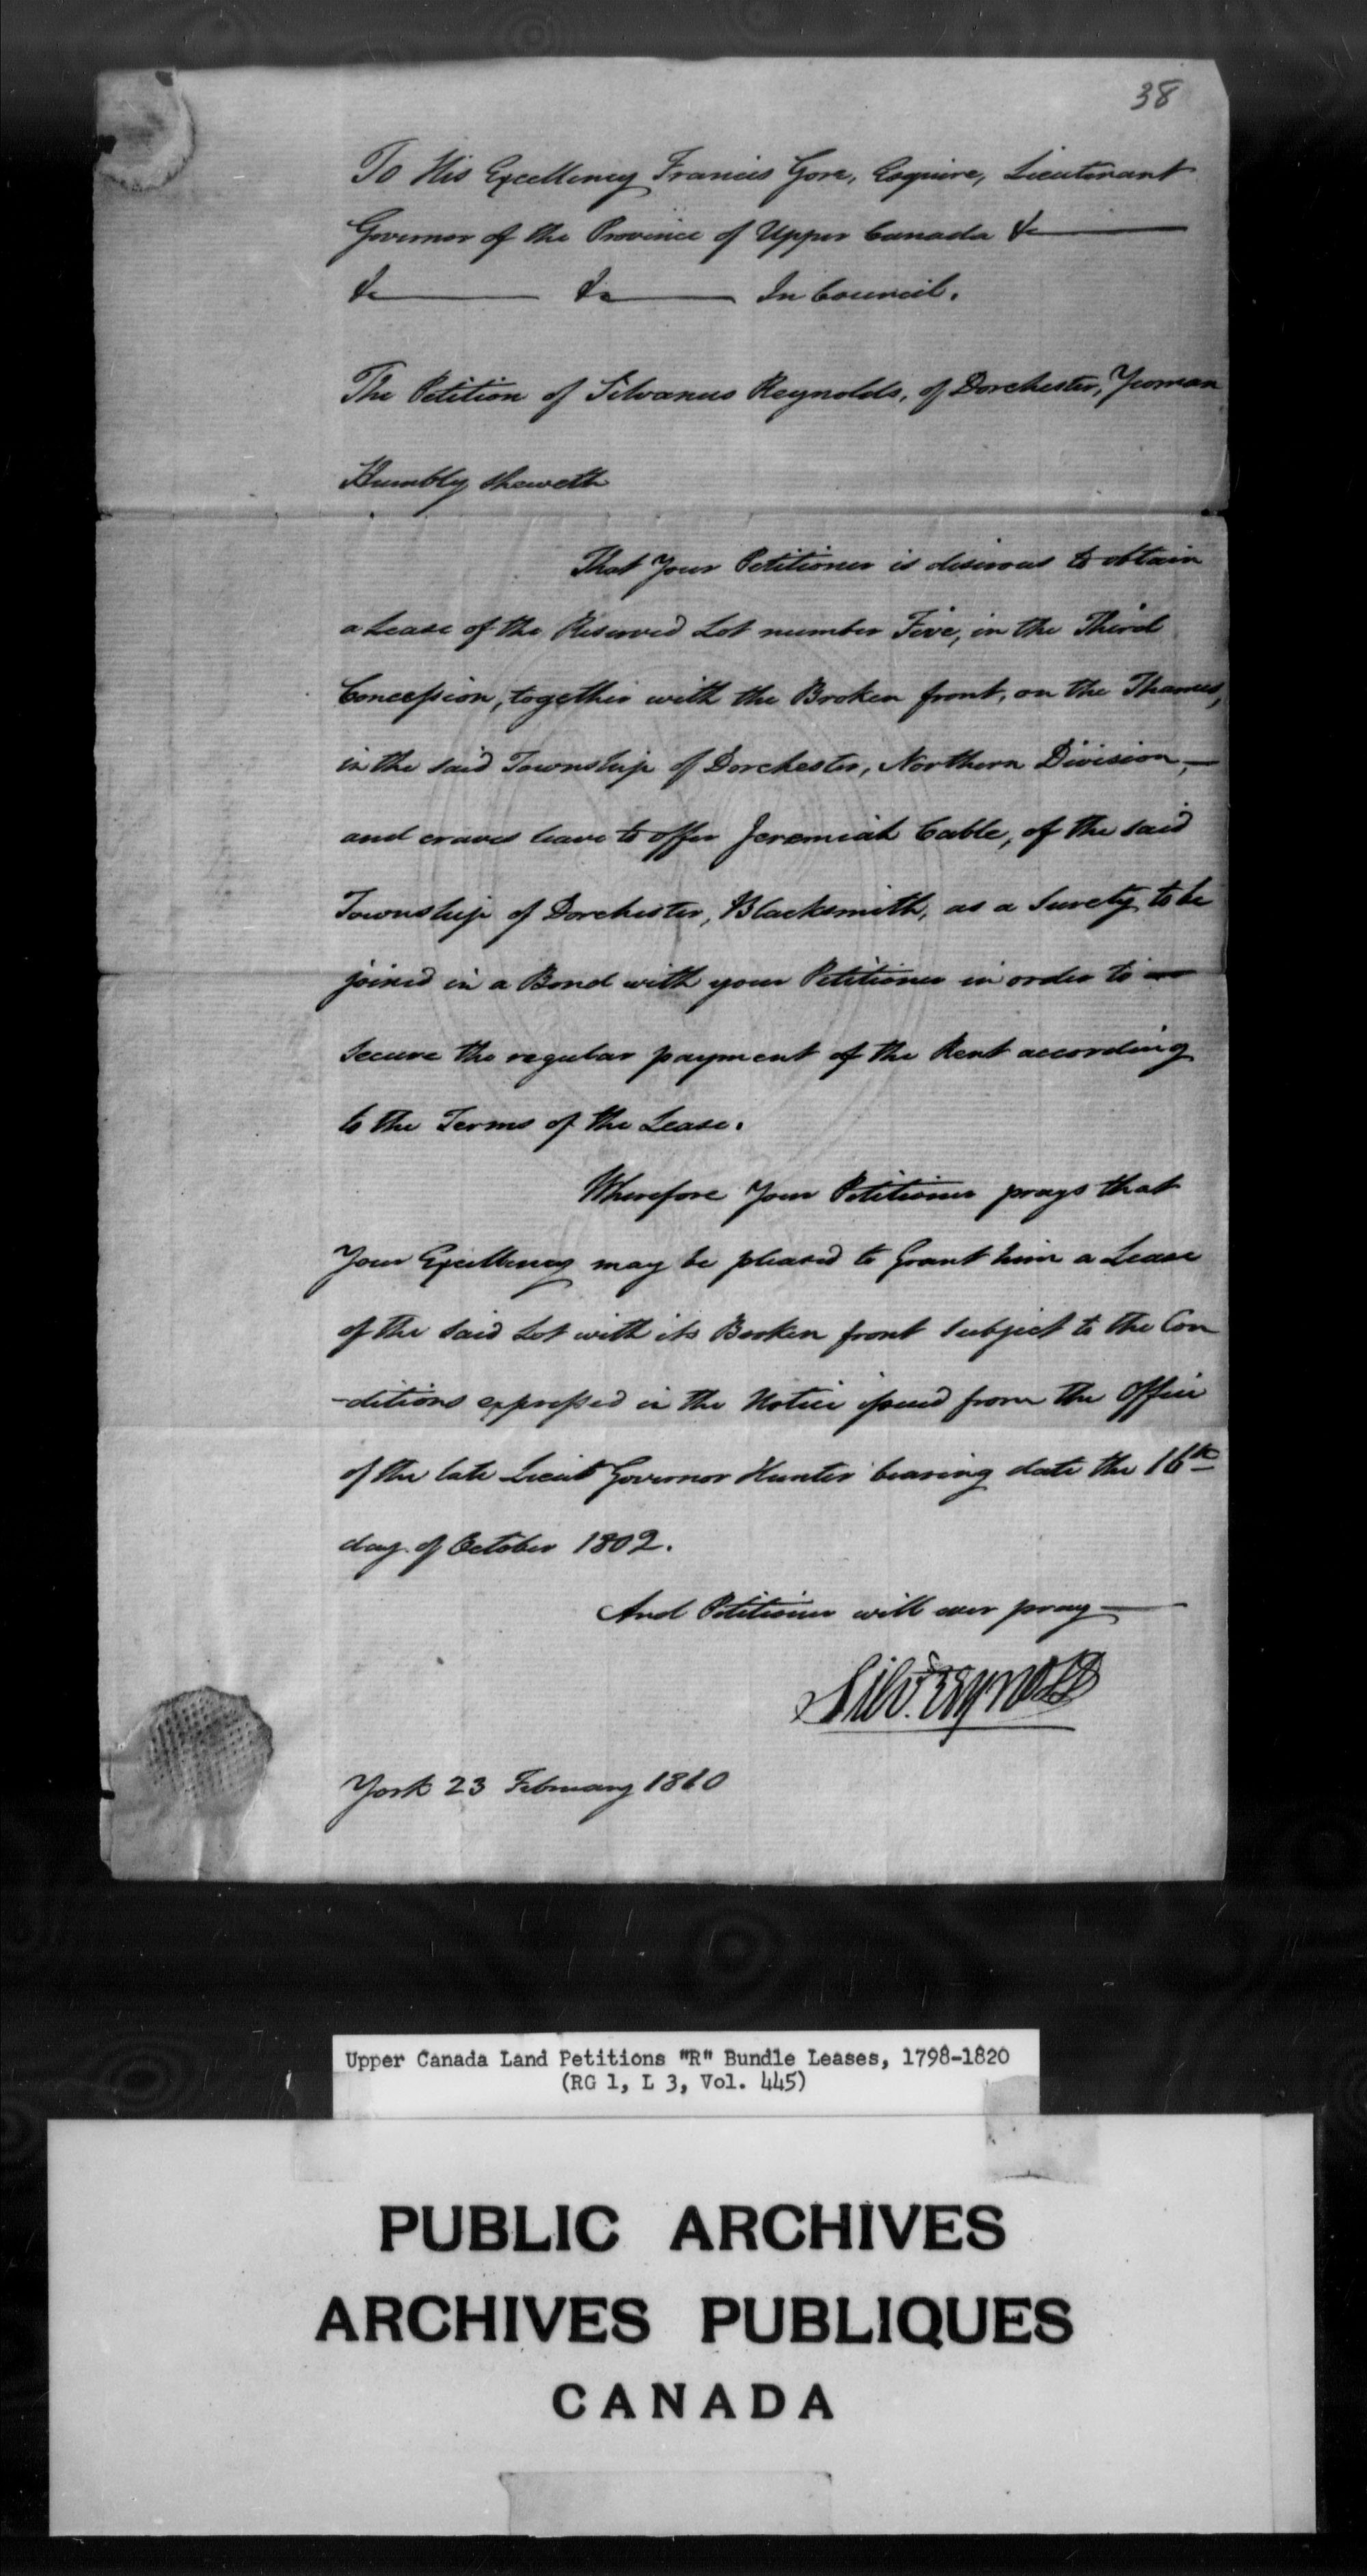 38
To His Excellency Francis Gore, Esquire, Lieutenant
Governor of the Province of Upper Canada &c
&c &c In Council.
The Petition of Silvanus Reynolds, of Dorchester, Yeoman
Humbly Sheweth
That Your Petitioner is desirous to obtain
a Lease of the Reserved Lot number Five, in the Third
Concession, together with the Broken front, on the Thames,
in the said Township of Dorchester, Northern Division,—
and craves leave to offer Jeremiah Cable, of the said
Township of Dorchester, Blacksmith, as a Surety to be
joined in a Bond with your Petitioner in order to
secure the regular payment of the Rent according
to the Terms of the Lease.
Wherefore Your Petitioner prays that
Your Excellency may be pleased to Grant him a Lease
of the said Lot with its Borken front subject to the Con
-ditions expressed in the Notice issued from the Office
of the late Lieut Governor Hunter bearing date the 16th
day of October 1802.
And Petitioner will ever pray—
Silv. Reynolds
York 23 February 1810
Upper Canada Land Petitions "R" Bundle Leases, 1798-1820
(RG 1, L 3, Vol. 445)
PUBLIC ARCHIVES
ARCHIVES PUBLIQUES
CANADA